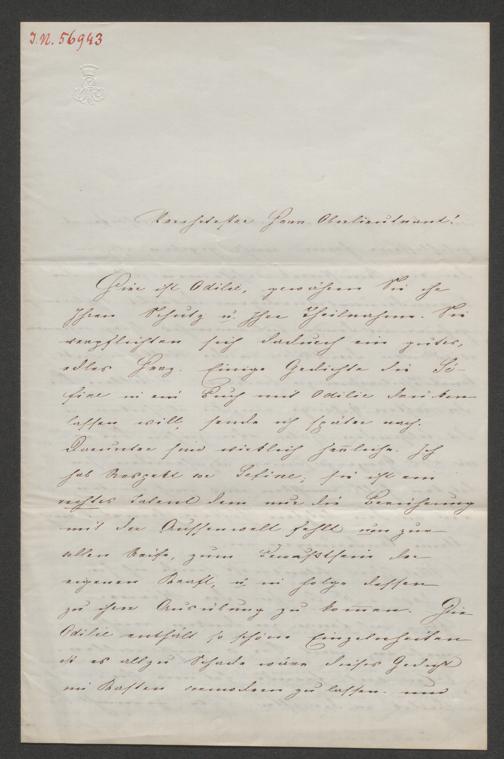 I.N. 56943
Verehrtester Herr Oberlieutnant!
Hier ist Odilie, gewähren Sie ihr
Ihren Schutz u Ihre Theilnahme. Sie
verpflichten sich dadurch ein gutes,
edles Herz. Einige Gedichte die Jo-
sfine in ein Buch mit Odilie drucken
lassen will, sende ich später nach.
Darunter sind wirklich herrliche. Ich
hab Respekt vor Josfine, sie ist ein
echtes Talent dem nur die Berührung
mit der Aussenwelt fehlt um zur
vollen Reife, zum Bewußtsein der
eigenen Kraft, u in Folge dessen
zu ihrer Ausübung zu kommen. Die
Odilie enthält so schöne Einzelnheiten
es allzu Schade wäre dieses Gedicht
im Kasten vermodern zu lassen. und